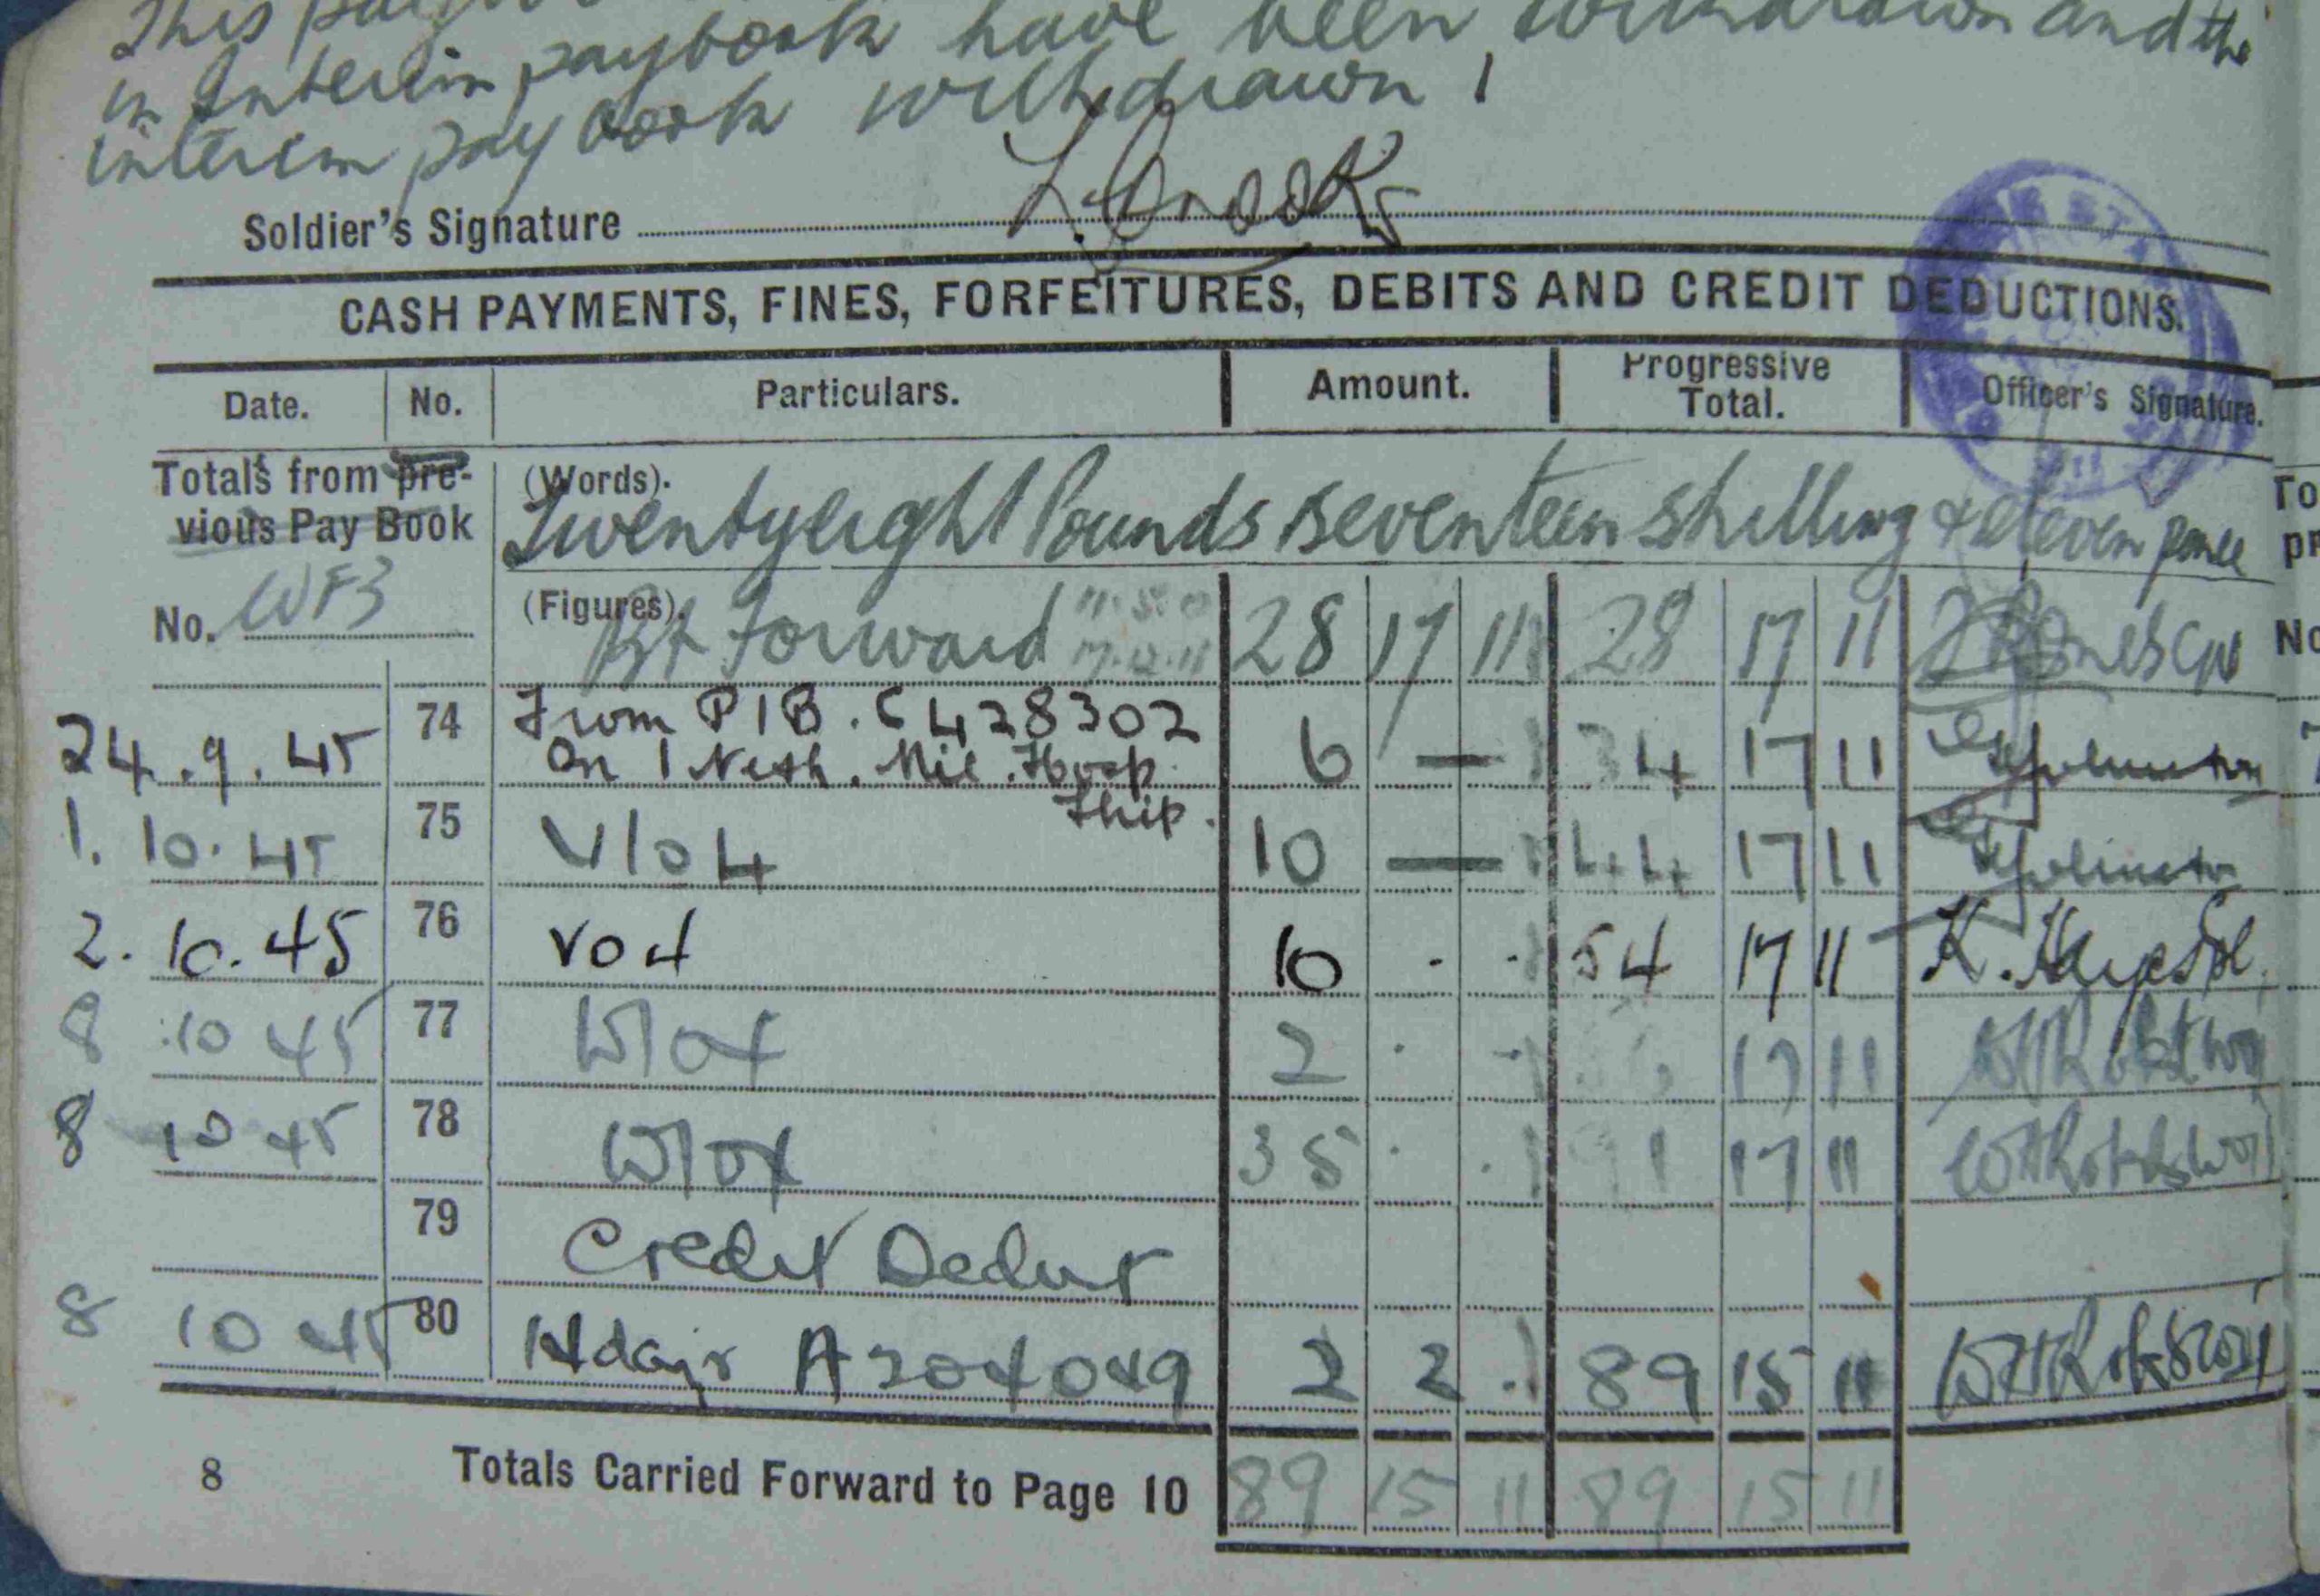 This
in Interim paybook have been withdrawn and the
interim pay book withdrawn
Soldier's Signature L. Brooks
CASH PAYMENTS, FINES, FORFEITURES, DEBITS AND CREDIT DEDUCTIONS.
Date. No. Particulars. Amount. Progressive Total. Officer's Signature.
Totals from pre-
vious Pay Book
(Words).
Twentyeight Pounds seventeen shilling & eleven pence
No. WF3 (Figures). Bt Forward 28 17 11 28 17 11
24.9.45 74 From P1B. C428302
On 1 Neth. Mil. Hosp. Ship. 6 — 34 17 11
1.10.45 75 V104 10 — 44 17 11
2.10.45 76 V04 10 . . 54 17 11 K. Hayes
8 10 45 77 2 . . 17 11
8 10 45 78 35 . . 91 17 11
79 Credit Deduct
8 10 45 80 14 days A204049 2 2 . 89 15 11
8 Totals Carried Forward to Page 10 89 15 11 89 15 11
To
pr
No